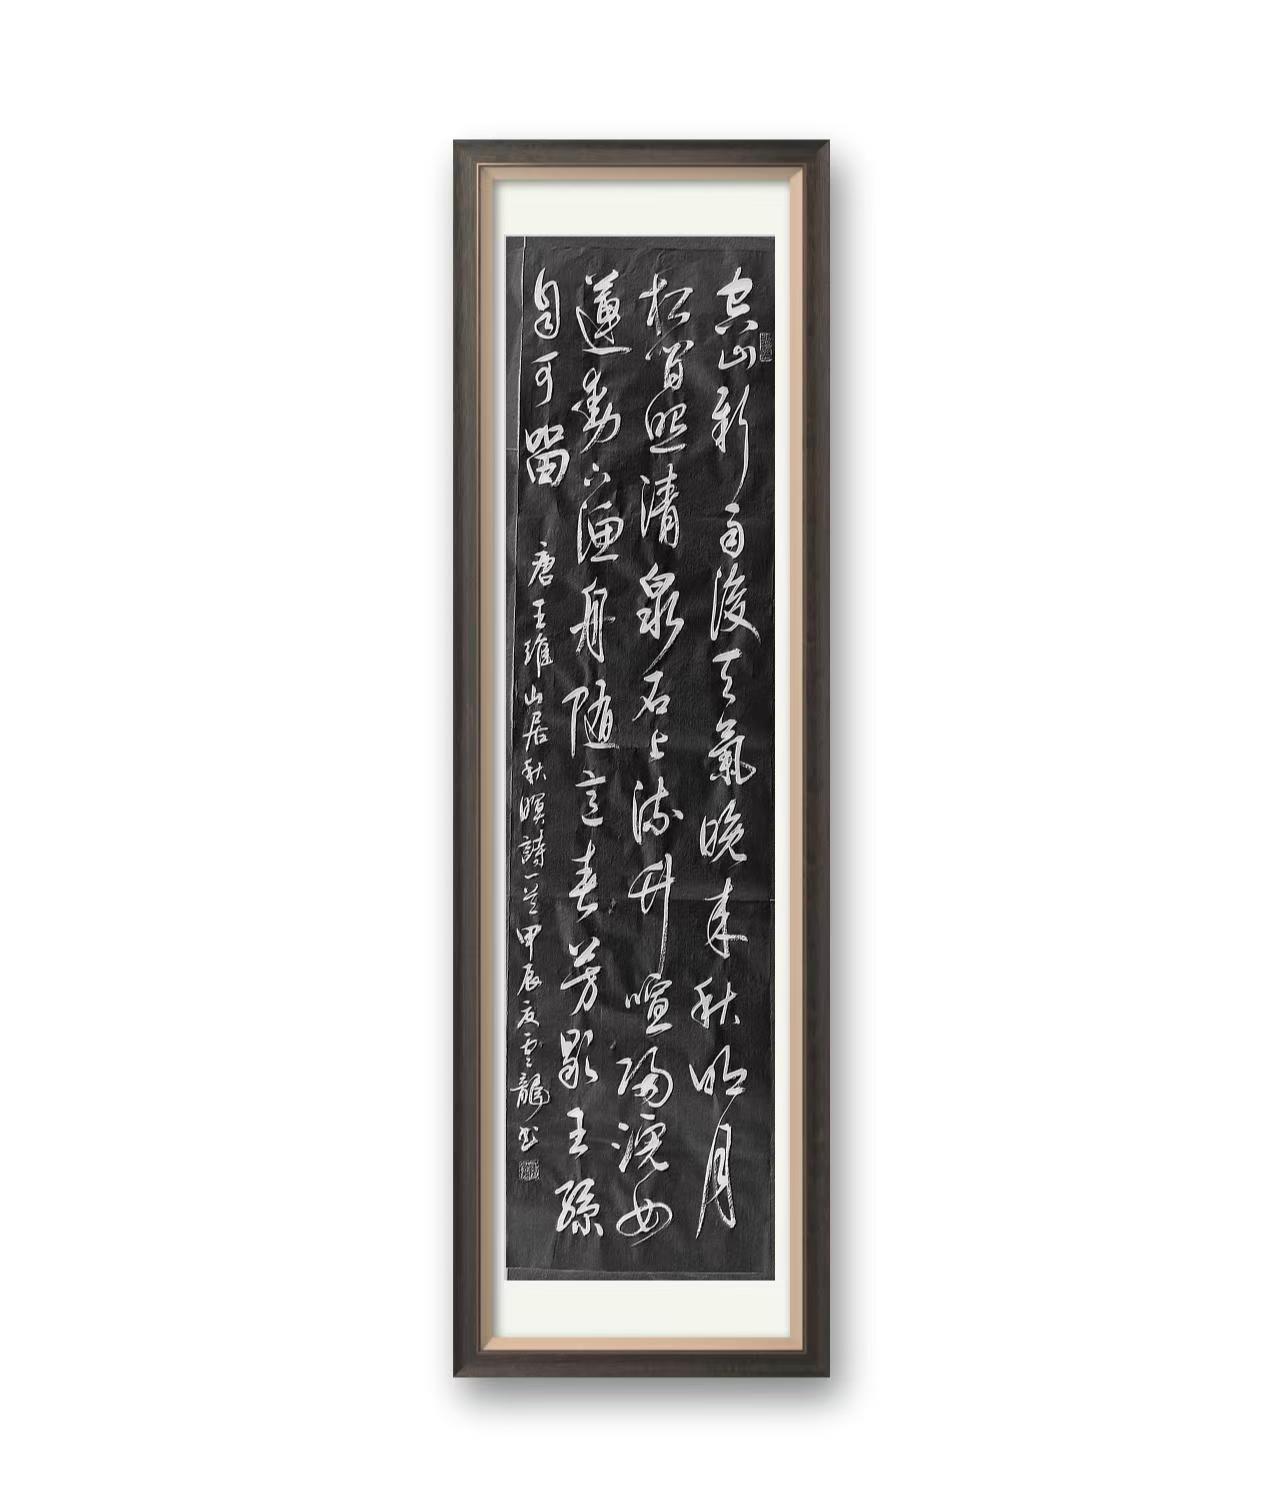 空山新雨後天氣晚来秋明月
松間照清泉石上流竹喧歸浣女
蓮動下漁舟隨意春芳歇王孫
自可留
唐王維山居秋暝詩一首甲辰夏雲龍书